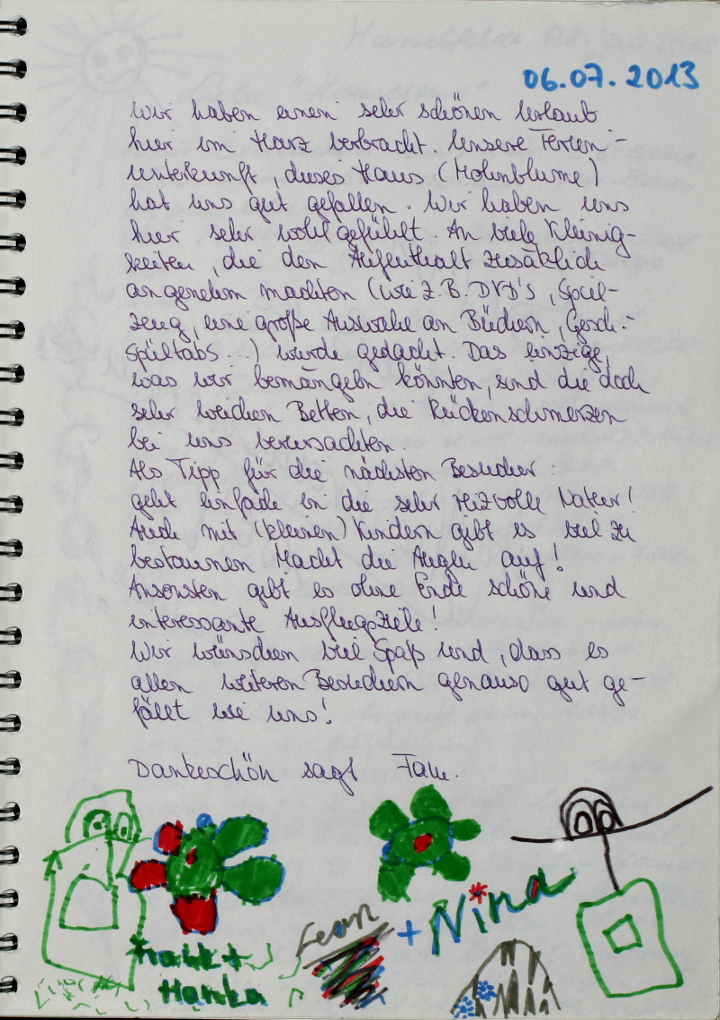 06.07.2013
Wir haben einen sehr schönen Urlaub
hier im Harz verbracht. Unsere Ferien-
unterkunft, dieses Haus (Mohnblume)
hat uns gut gefallen. Wir haben uns
hier sehr wohl gefühlt. An viele Kleinig-
keiten, die den Aufenthalt zusätzlich
angenehm machten (wie z.B. DVD's, Spiel-
zeug, eine große Auswahl an Büchern, Gesch.-
spültabs...) wurde gedacht. Das einzige,
was wir bemängeln könnten, sind die doch
sehr weichen Betten, die Rückenschmerzen
bei uns verursachten.
Als Tipp für die nächsten Besucher:
geht einfach in die sehr reizvolle Natur!
Auch mit (kleinen) Kindern gibt es viel zu
bestaunen. Macht die Augen auf!
Ansonsten gibt es ohne Ende schöne und
interessante Ausflugsziele!
Wir wünschen viel Spaß und, dass es
allen weiteren Besuchern genauso gut ge-
fällt wie uns!
Dankeschön sagt Fam.
Frank +
Hanka
Leon
+ Nina